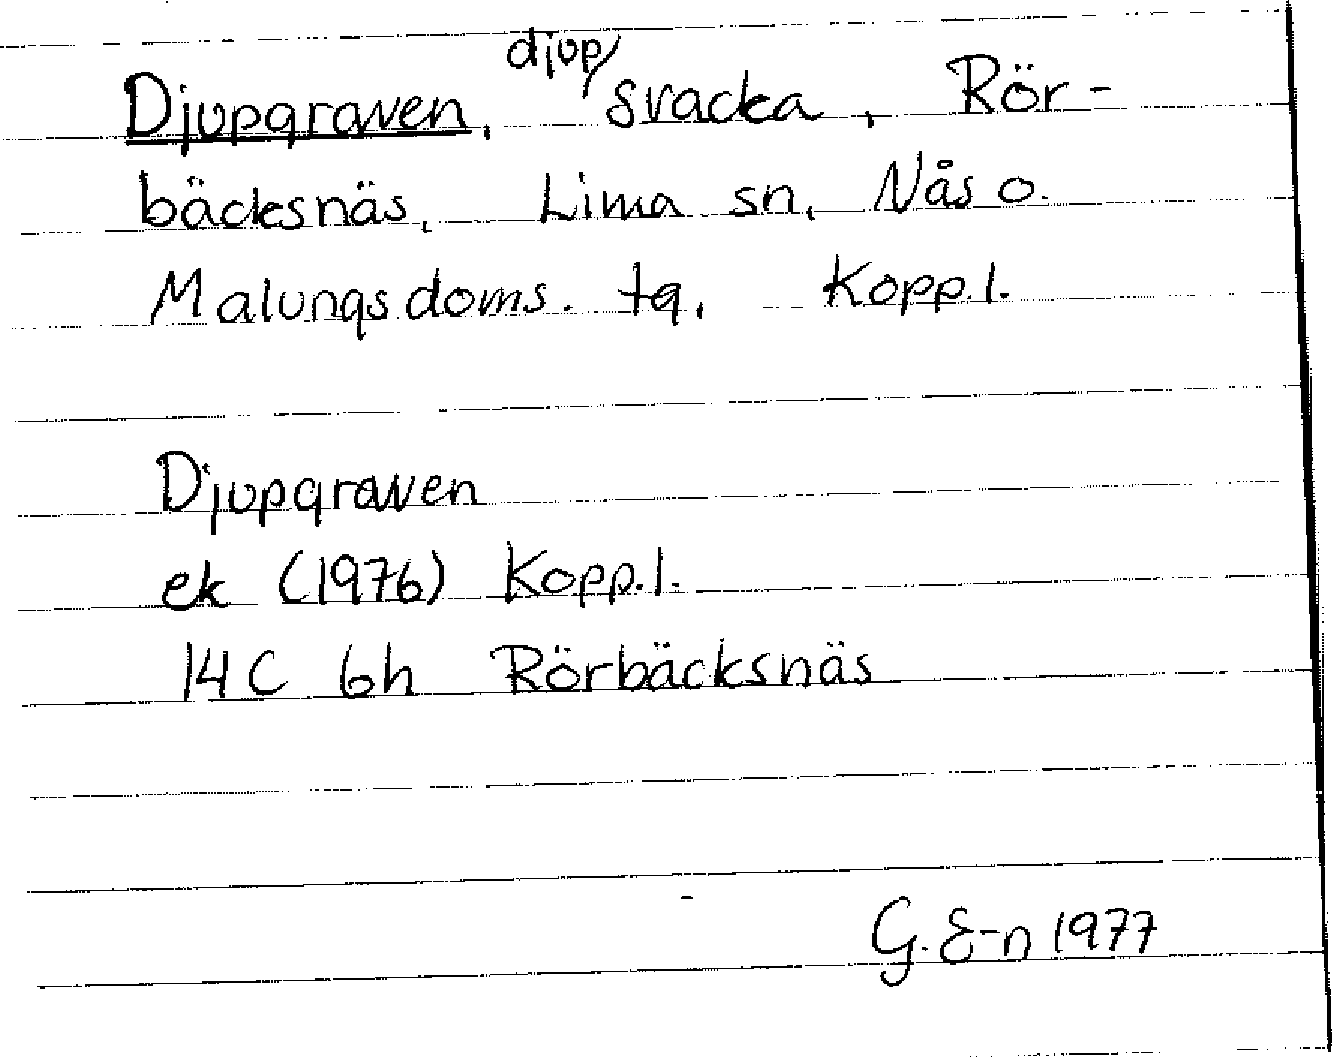 Djupgraven, djup svacka, Rör-
bäcksnäs, Lima sn, Nås o.
Malungs doms. tg, Kopp. l.
Djupgraven
ek (1976) Kopp. l.
14 C 6h Rörbäcksnäs
G. E-n 1977